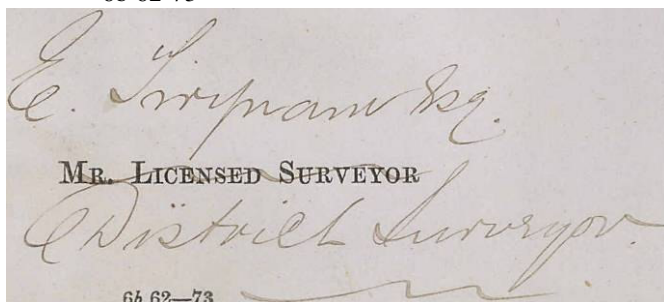 E. Esq.
MR. LICENSED SURVEYOR
District Surveyor.
6b 62—73